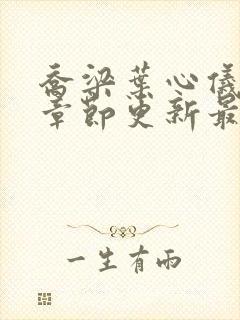 乔梁叶心仪
章节更新最
一生有雨